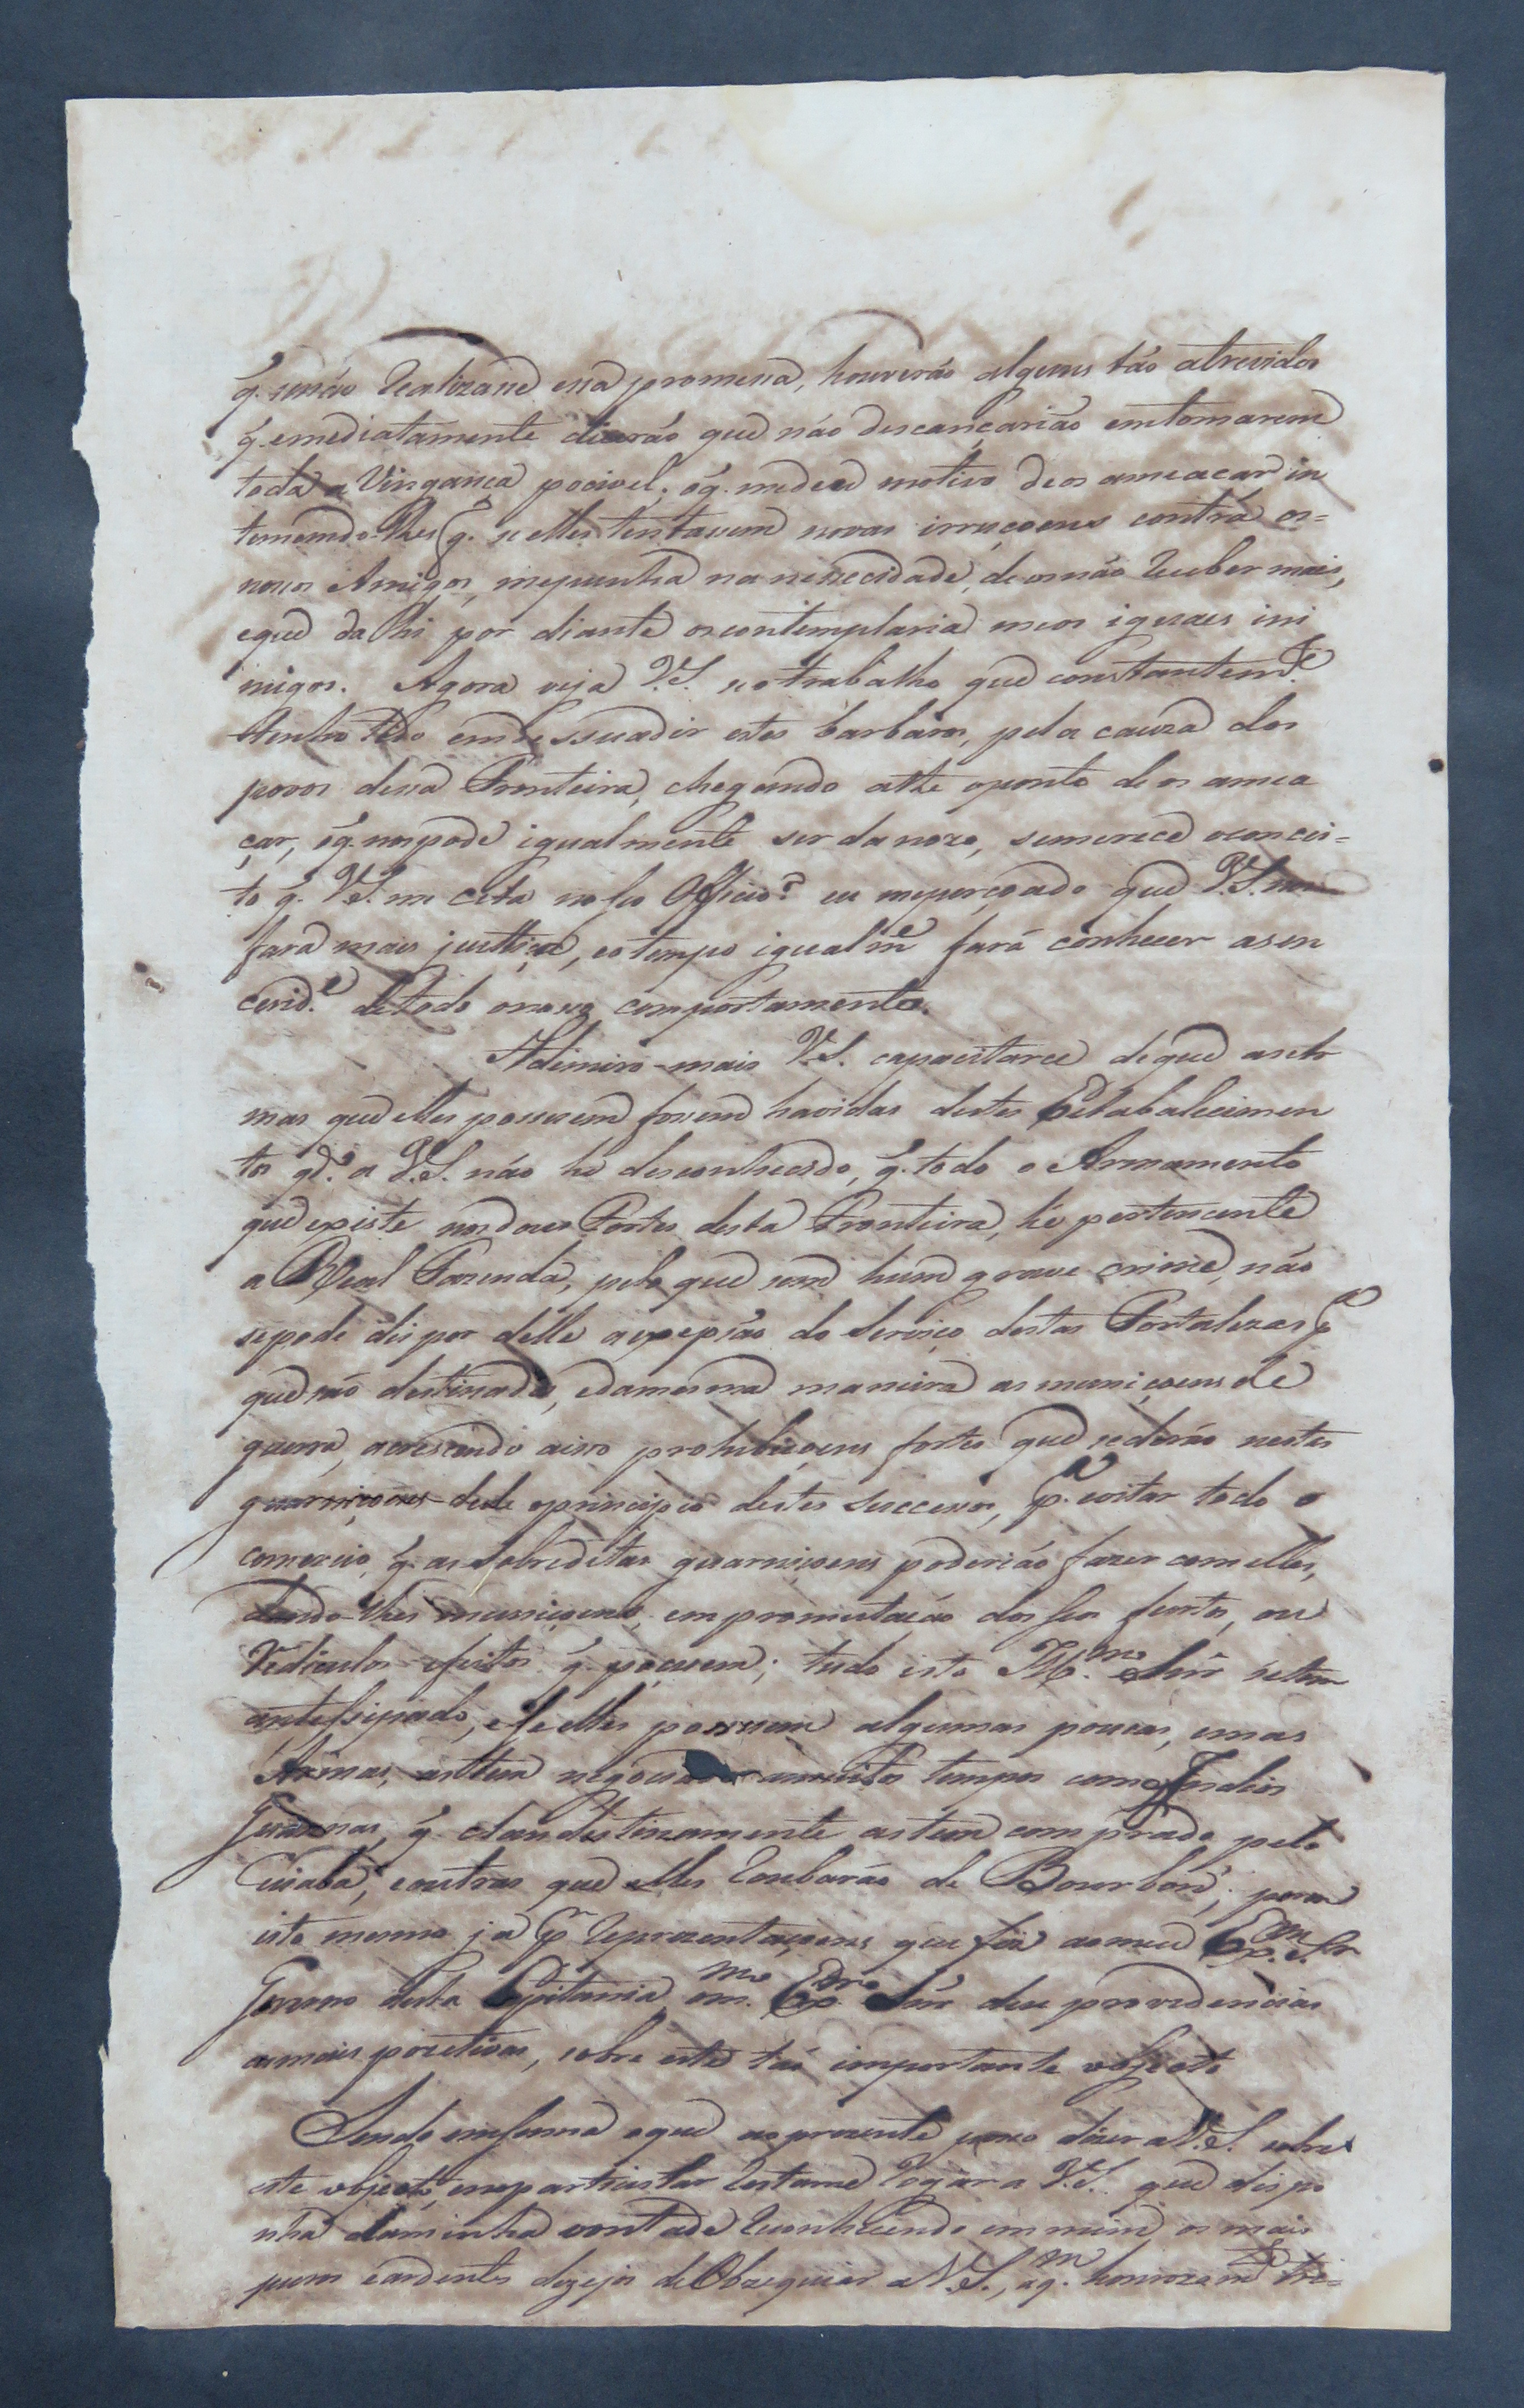 q. senão Realizand essa promessa, houverão alguns tão atrevidos
q. emediatamente dicerão que não descançarião emtomarem
toda a Vingança pocivel; oq. medeu motivo deos ameacar in
temando-lhes q. se elles tentassem novas irrucoens contra os=
nossos Amigos, mepunha na nececidade, de osnão Receber mais,
eque dalhi por diante oscontemplaria meos iguaes ini
migos. Agora veja V.S. seotrabalho que constantem.te
tenho tido em dessuadir estes barbaros, pela cauza dos
povos dessa Fronteira, chegando athe oponto de os amea
çar, oq. nospode igualmente ser danozo, semerece oconcei=
to q. V.S. me cita no seo Officio? eu mepersoado que V.S. me
fara mais justtiça, eotempo igualm.e fará conhecer asin
cerid.e detodo onosso comportamento.
Admiro-mais V.S. capacitarce deque asar
mas que elles possuem fossem havidas destes Estabalecimen
tos qd.o a V.S. não he desconhecido, q. todo o Armamento
que existe nosdous Fortes desta Fronteira, hé pertencente
a Real Fazenda, pelo que sem hum grave crime, não
sepode dispor delle aexepsão do Serviço destas Fortalezas p.a
que são destinadas, edamesma maneira as municoens de
guerra, acrescendo aisso prohibicoens fortes que sederão nestas
guarniçoens desde oprincipio destes sucessos, p.a evitar todo o
comercio, q. as sobreditas guarnicoens poderião fazer comelles,
dando-lhes municoens, em promutação dos seos furtos, ou
Rediculos efeitos q. pocuem; tudo isto Ill.mo Snr setem
antessipado, e se elles possuem algumas poucas, emas
Armas, astem negociado amuitos tempos comos Indios
Guannas, q. clandestinamente astem comprado pelo
Cuiabá, eoutras que elles Roubarão de Bourbon; porem
isto mesmo já p.r Reprezentaçoens que fiz aomeu Ex.mo Snr
Governo desta Capitania, om.mo Ex.mo Snr deu providencias
asmais pozetivas, sobre este tão importante objecto
Sendo emsuma oque aoprezente posso dizer a V.S. sobre
este objecto, emeparticular Restame Rogar a V.S. que dispo
nha daminha vontade Reconhecendo em mim os mais
puros eardentes dezejos deObzequiar a V.S., aq.m